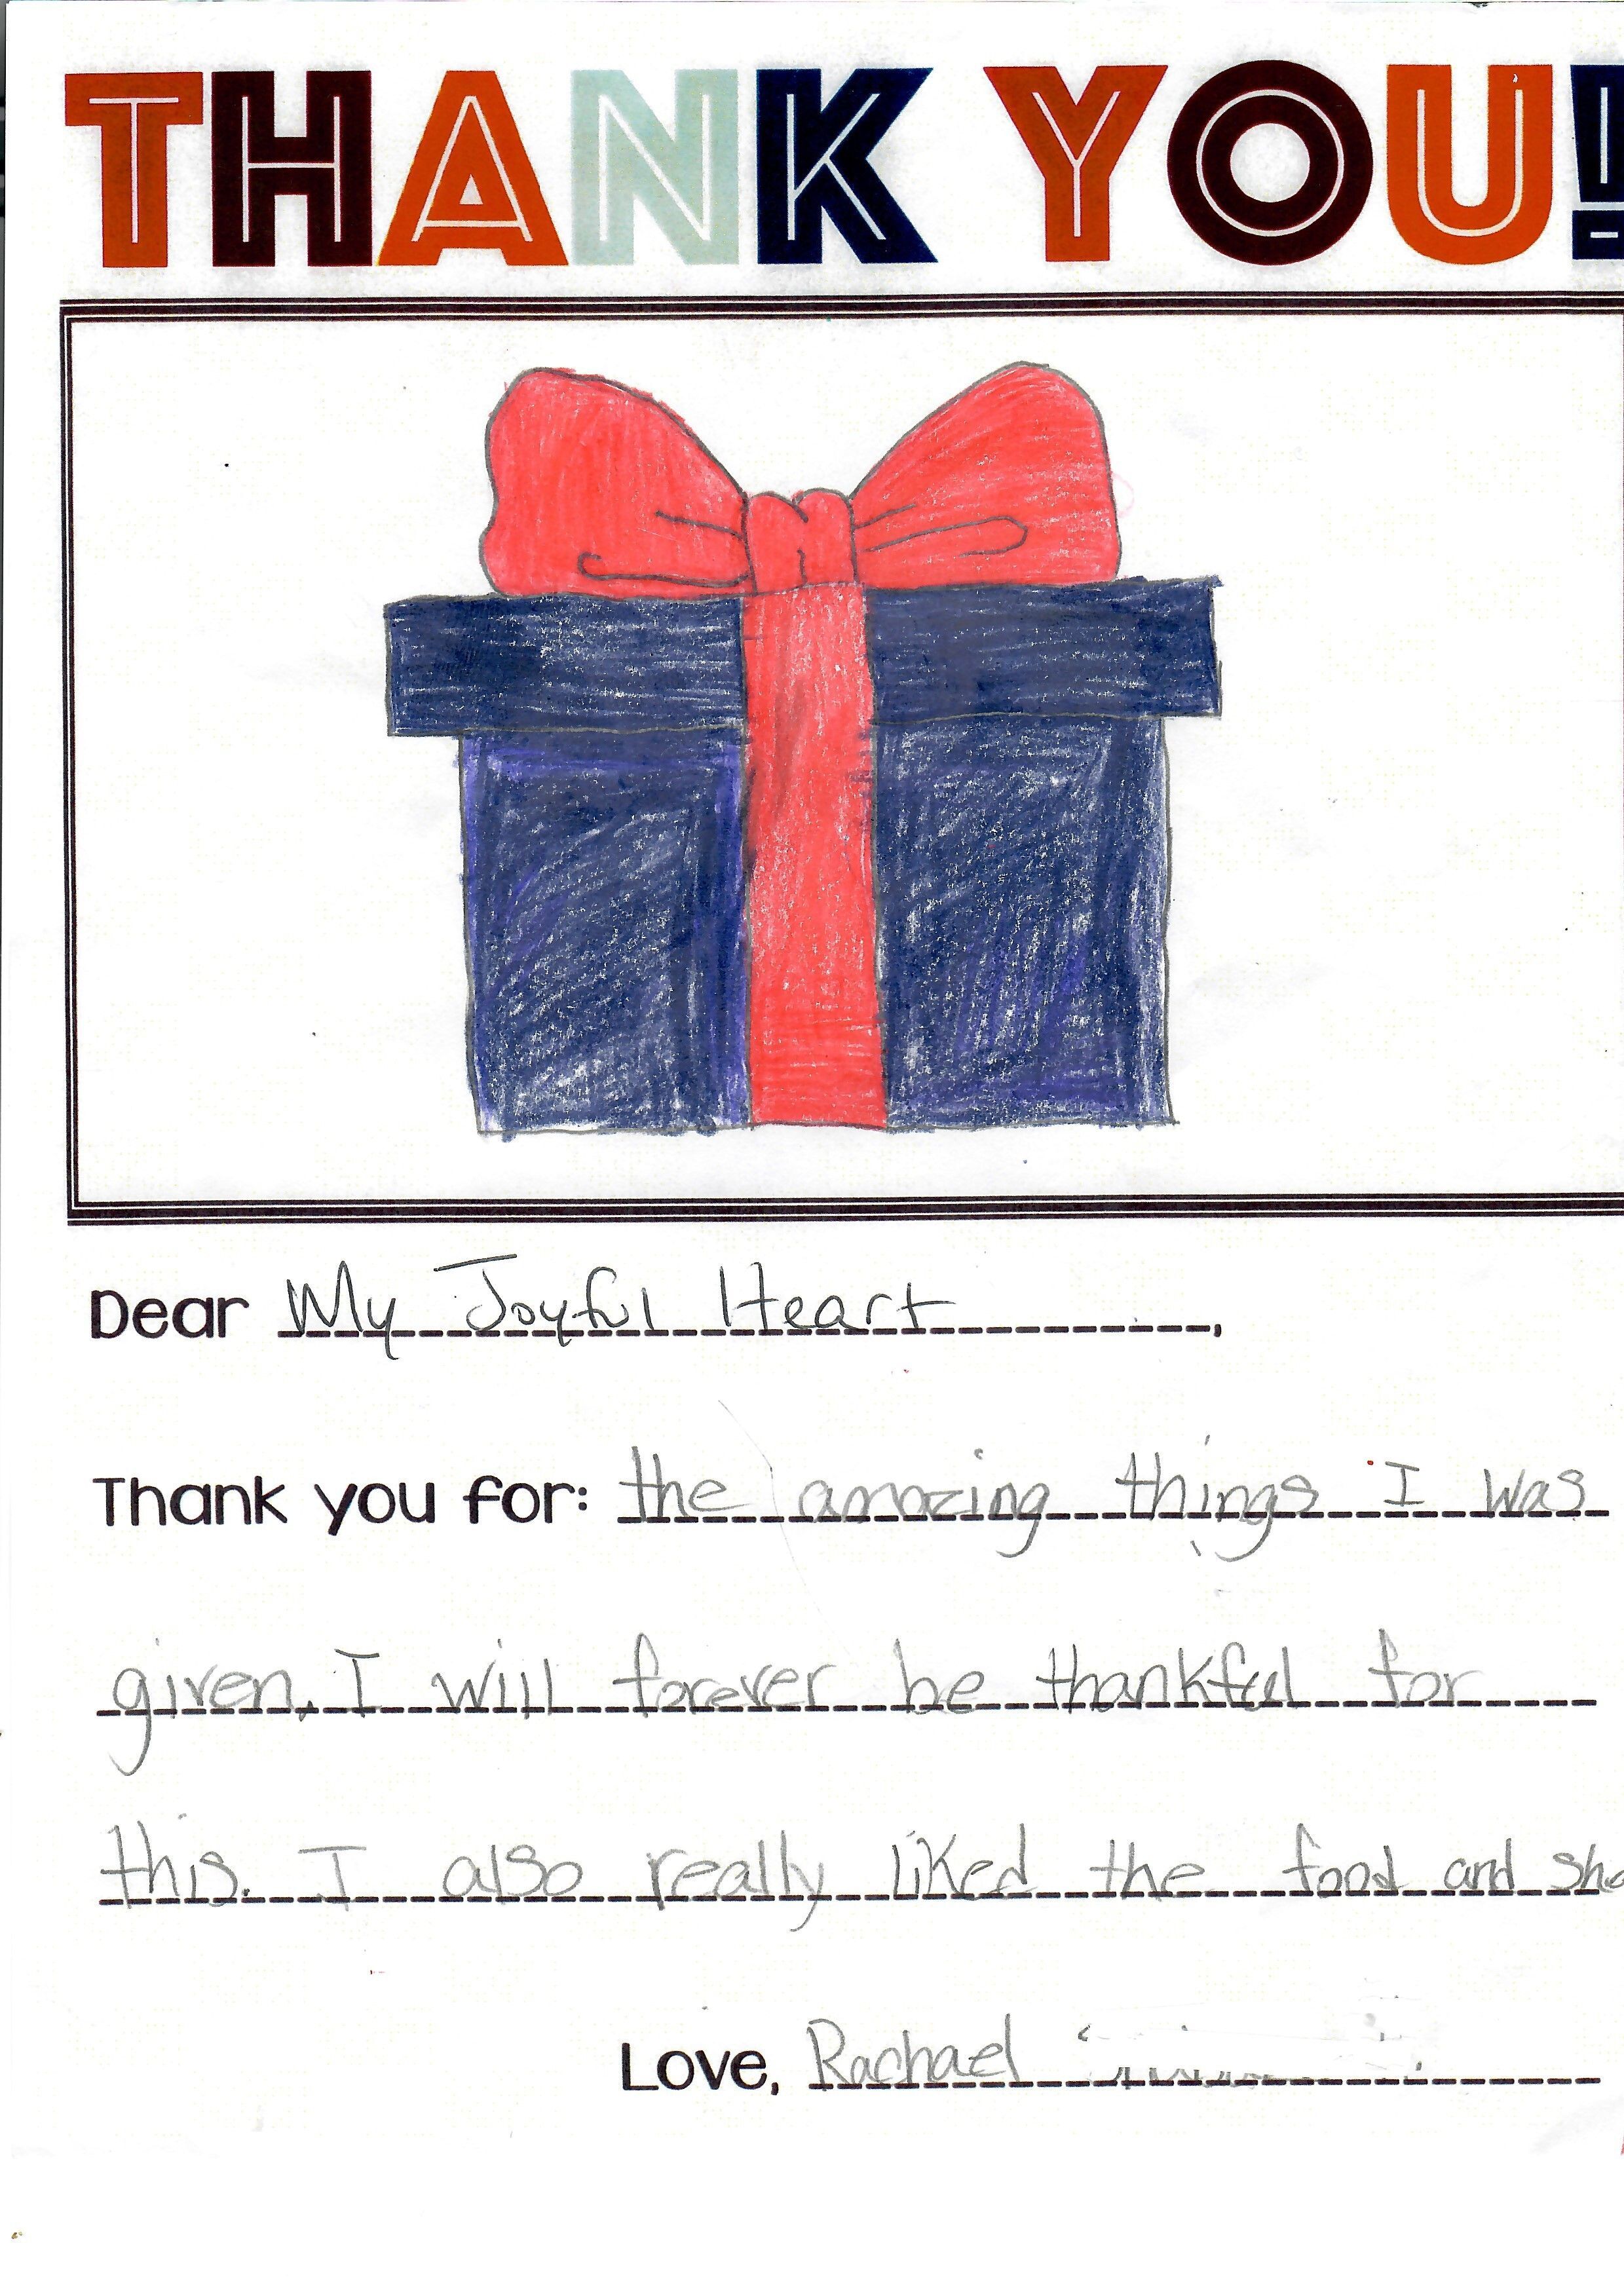 THANK YOU!
Dear My Joyful Heart,
Thank you for: the amazing things I was
given, I will forever be thankful for
this. I also really liked the food and
Love, Rachael